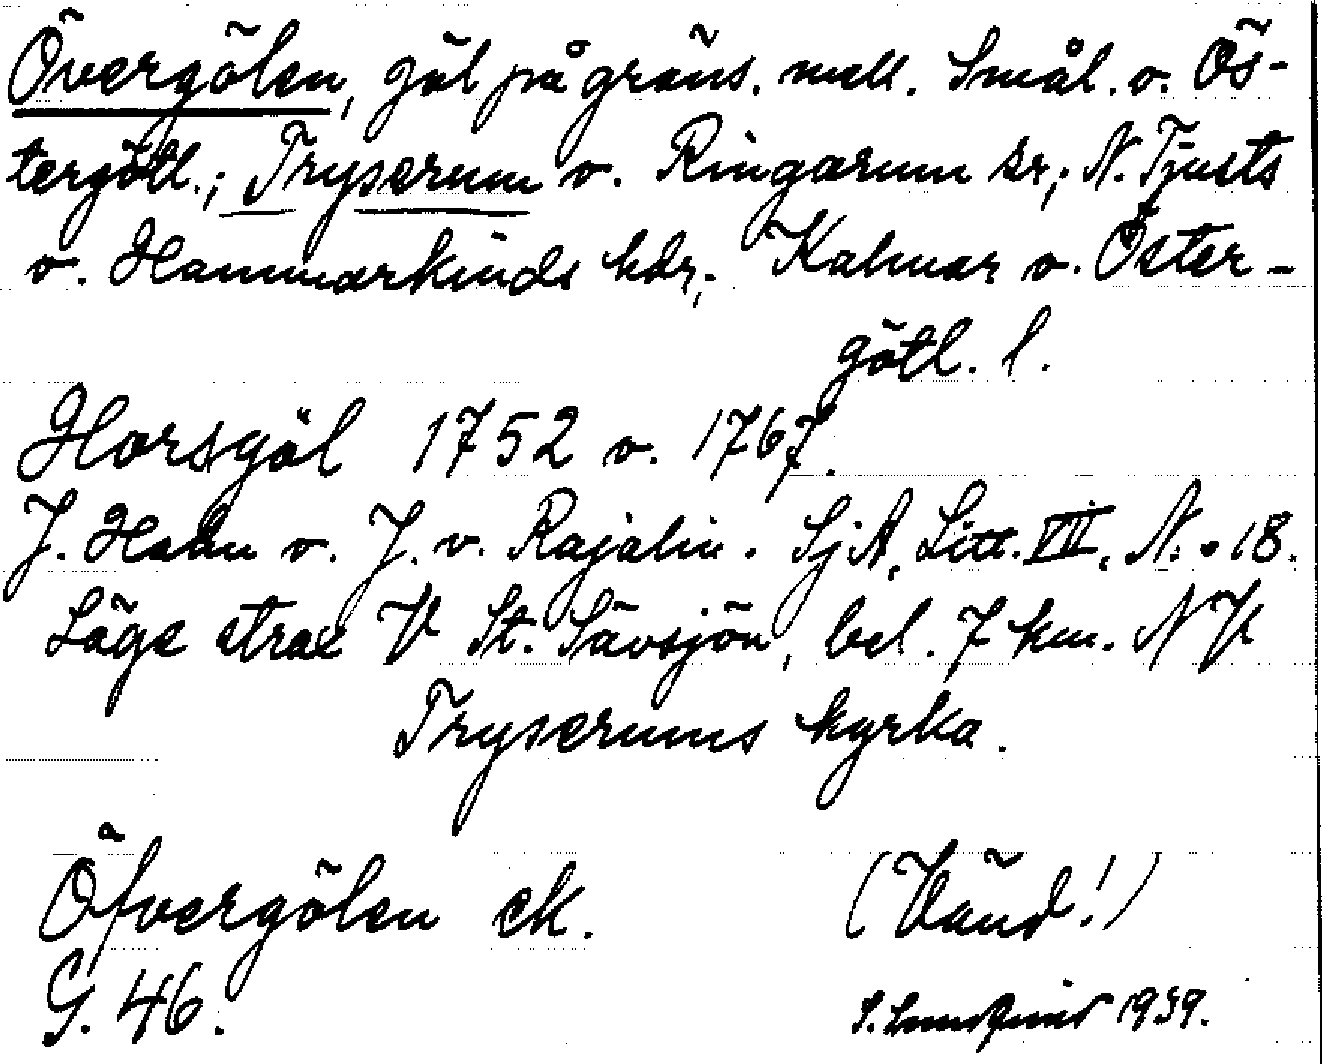 Övergölen, göl på gräns. mell. Smål. o. Ös-
tergötl.; Tryserum o. Ringarum sr; N. Tjusts
o. Hammarkinds hdr; Kalmar o. Öster-
götl. l.
Horsgöl 1752 o. 1767.
J. Hahn o. J. v. Rajalin. SjA, Litt. VII, N. 18.
Läge strax V St. Sävsjön, bel. 7 km. NV
Tryserums kyrka.
Öfvergölen ek.
(Vänd!)
G. 46.
S. 1939.